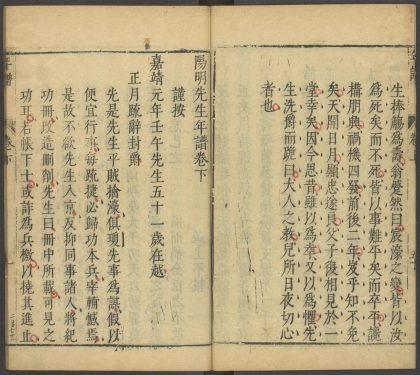 生捧觴爲壽翁蹙然曰宸濠之變皆以汝
爲死矣而不死皆以事難平矣而卒平讒
搆朋興禍機四發前後二年岌乎知不免
矣天開日月顯忠遂良父子復相見於一
堂幸矣因今思昔雖以爲幸又以爲懼先
生洗爵而跪曰大人之教兒所日夜切心
者也
陽明先生年譜卷下
謹按
嘉靖元年壬午先生五十一歲在越
正月疏辭封爵
先是先生平賊擒濠俱瓊先事爲謀假以
便宜行事每疏捷必歸功本兵宰輔憾焉
是故不欲先生入京反抑同事諸人將紀
功冊以造刪削先生曰冊中所載可見之
功耳若帳下士或詐爲兵檄以撓其進止
年譜
卷下